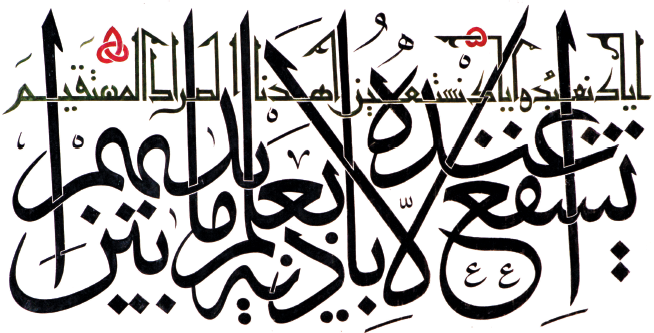 اياك نعبد و اياك نستعين اهدنا الصراط المستقيم
يشفع عنده إلا بإذنه يعلم ما بين أيديهم